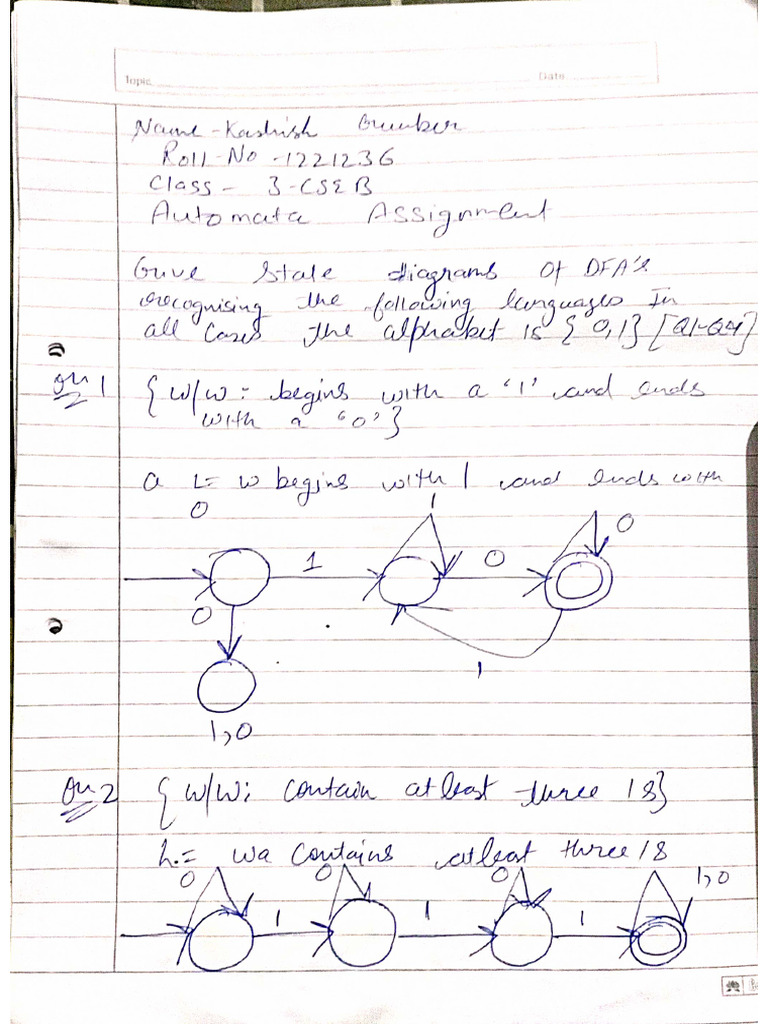 Topic
Date
Name - Kashish Gumber
Roll-No - 1221236
Class - 3-CSE B
Automata Assignment
Give State diagrams of DFA's
recognising the following languages In
all Cases the alphabet is { 0,1} [Q1-Q4]
Qn 1 { w/w : begins with a '1' and ends
with a '0'}
a L= w begins with 1 and ends with
0
1
0
1
0
0
1
1,0
Qn 2 { w/w; contain at least three 1s}
L.= wa contains atleast three 1s
0 0 0 1,0
1 1 1